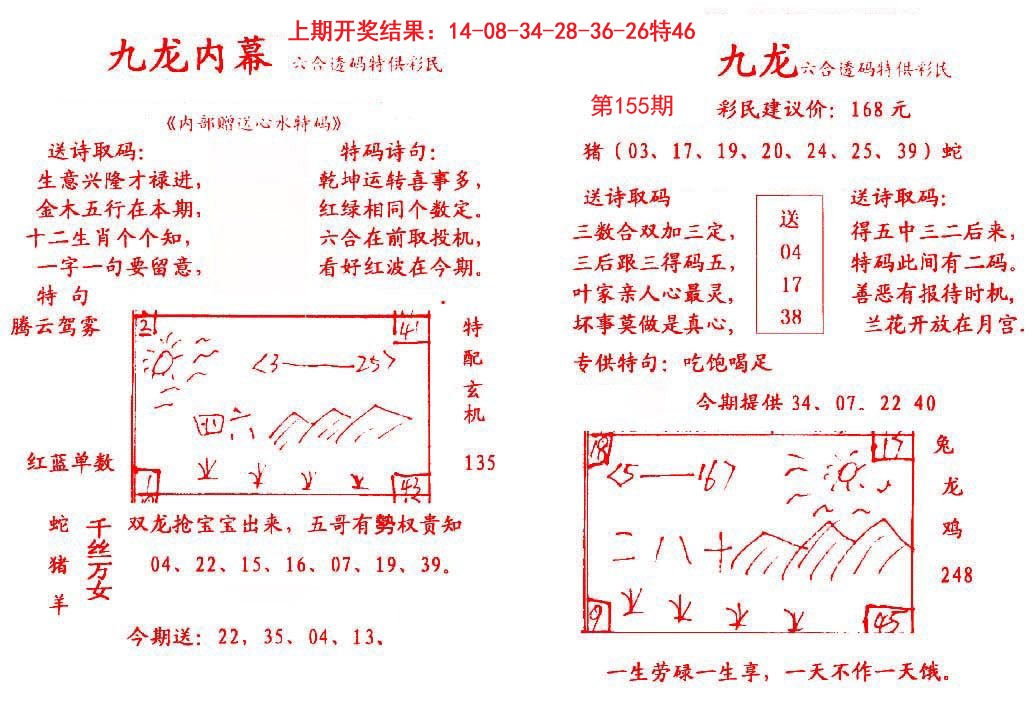 上期开奖结果：14-08-34-28-36-26特46
九龙内幕 六合透码特供彩民
《内部赠送心水特码》
送诗取码：
生意兴隆才禄进，
金木五行在本期，
十二生肖个个知，
一字一句要留意，
特码诗句：
乾坤运转喜事多，
红绿相同个数定。
六合在前取投机，
看好红波在今期。
特 句
腾云驾雾
红蓝单数
2
41
<3——25>
四六
1
43
特配玄机
135
蛇
猪
羊
千丝万女
双龙抢宝宝出来，五哥有勢权贵知
04、22、15、16、07、19、39。
今期送：22，35、04、13、
九龙 六合透码特供彩民
第155期 彩民建议价：168元
猪（03、17、19、20、24、25、39）蛇
送诗取码
三数合双加三定，
三后跟三得码五，
叶家亲人心最灵，
坏事莫做是真心，
送
04
17
38
送诗取码：
得五中三二后来，
特码此间有二码。
善恶有报待时机，
兰花开放在月宫.
专供特句：吃饱喝足
今期提供 34、07、22 40
18
17
<5——16>
二八十
9
45
兔
龙
鸡
248
一生劳碌一生享，一天不作一天饿。